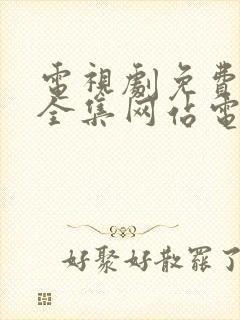 電視劇免費
全集网佔電
好聚好散罷了